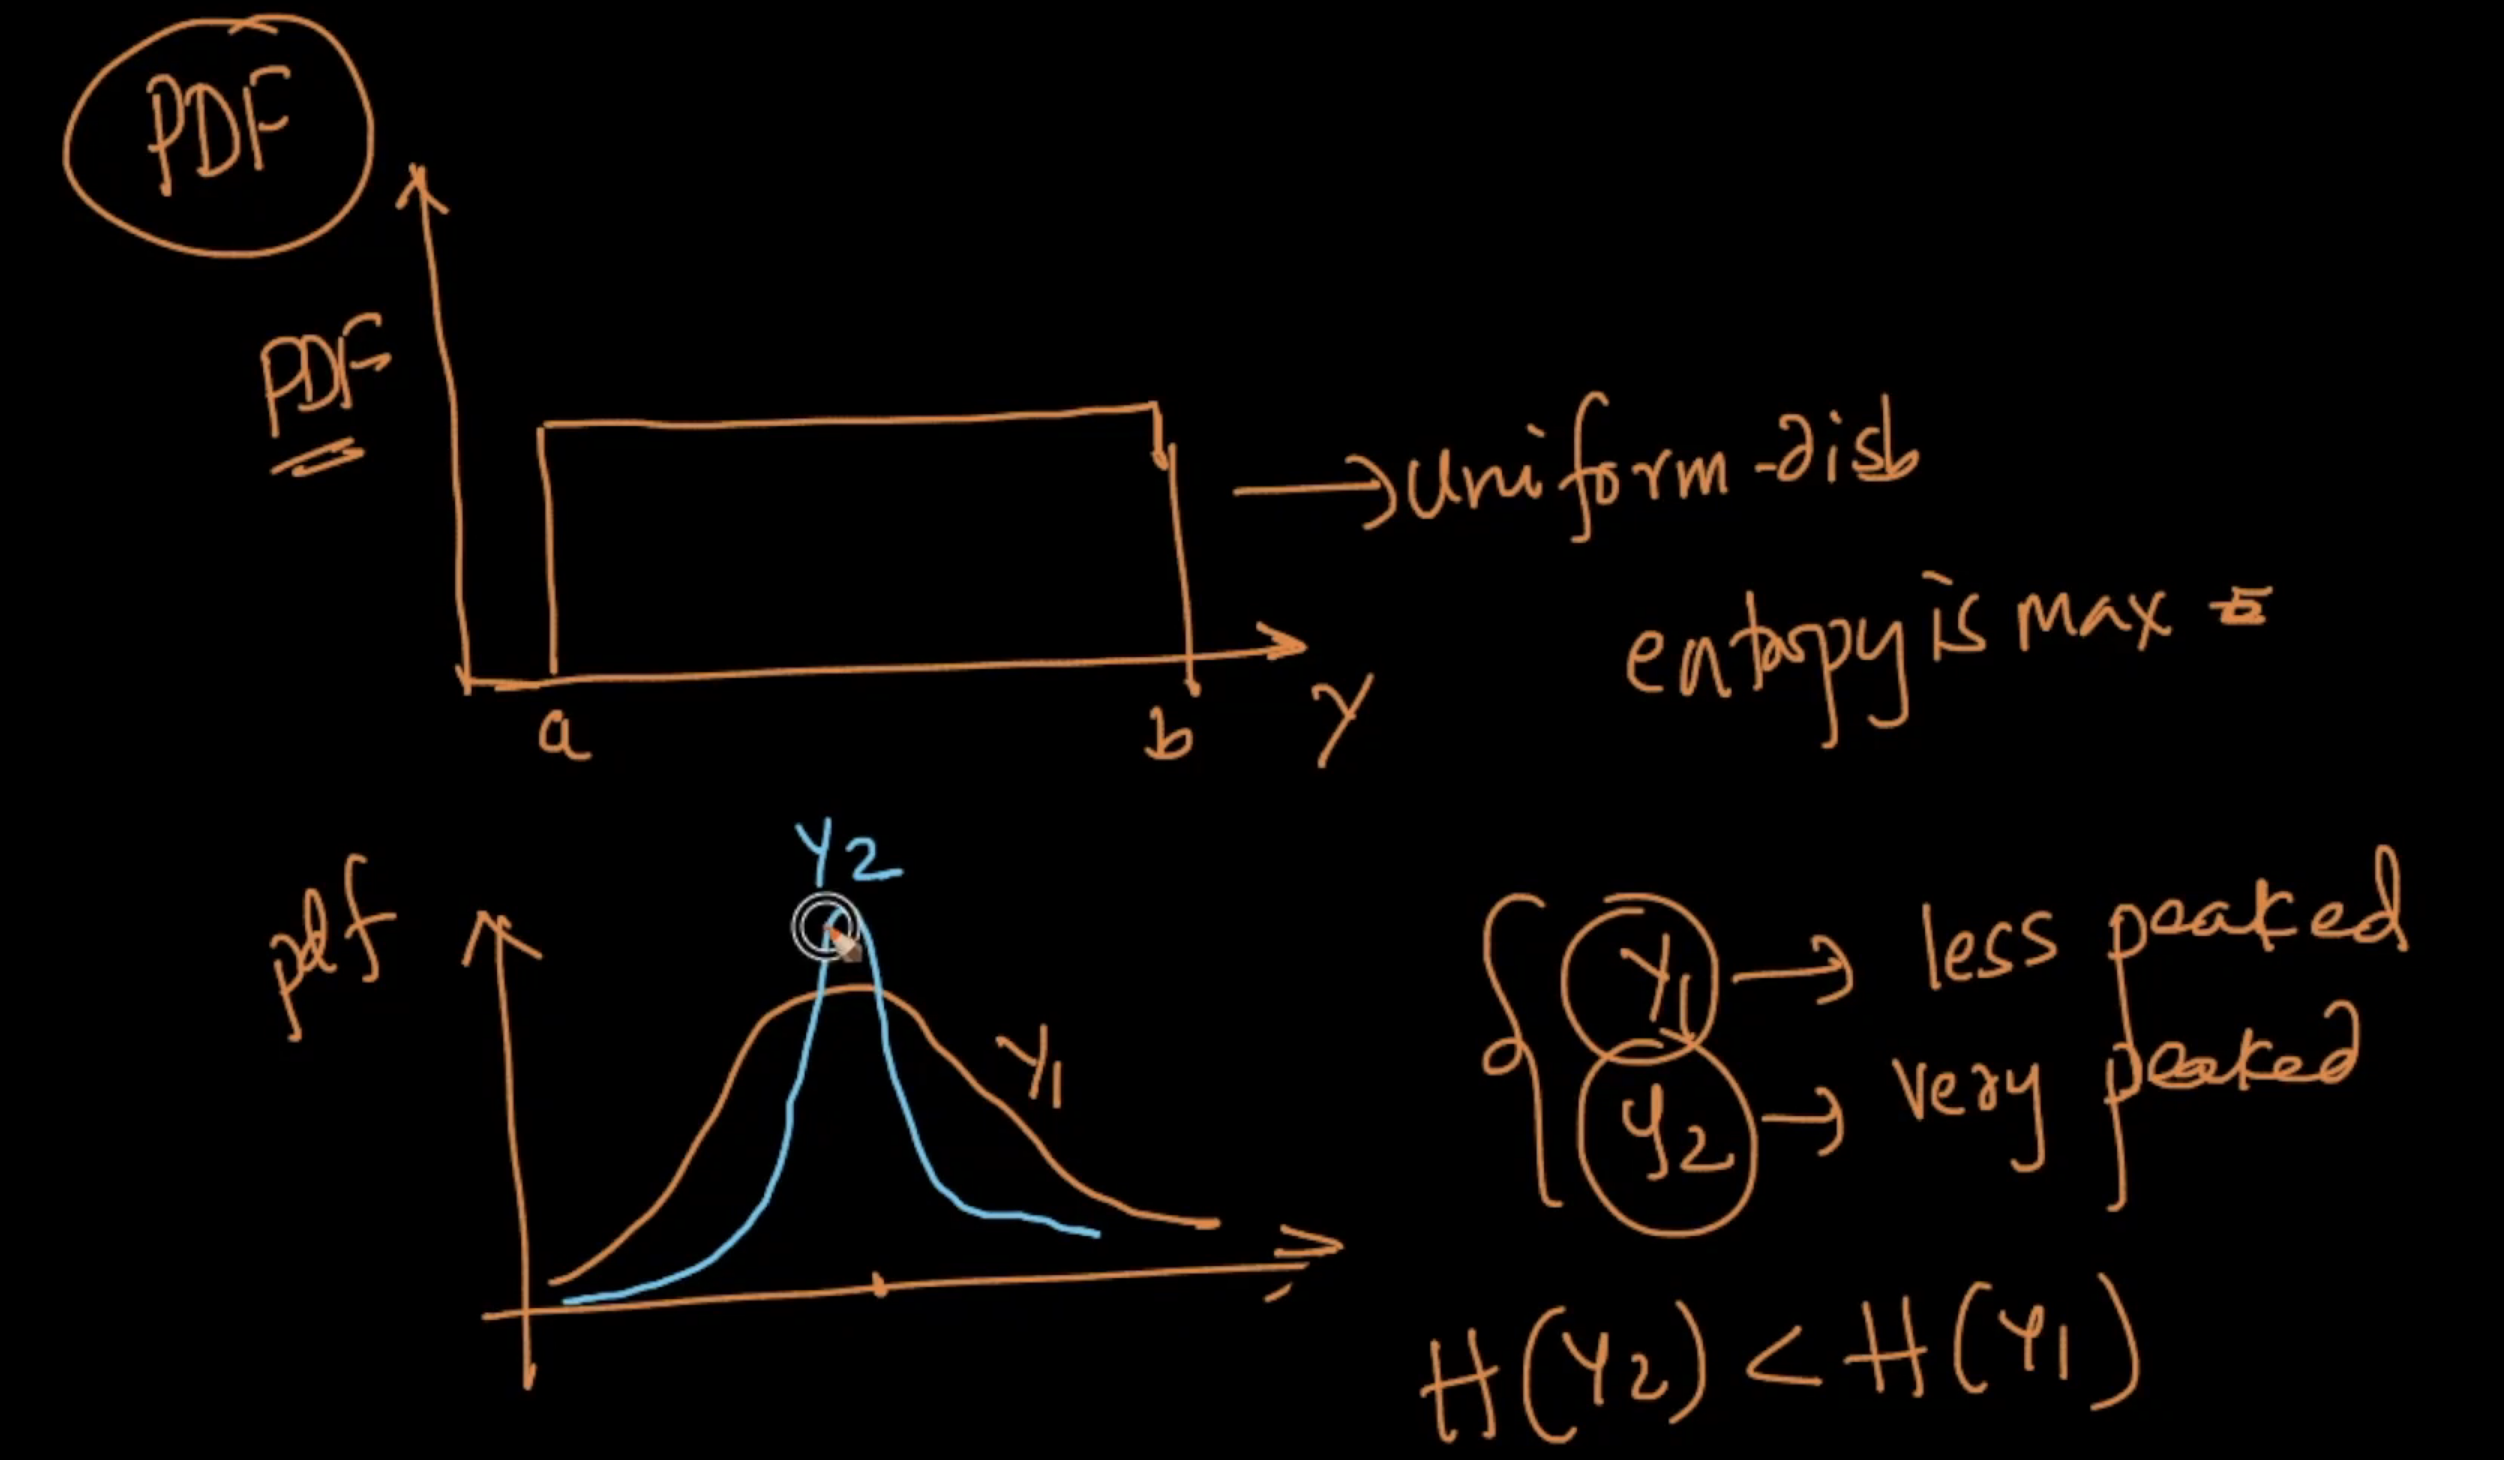 PDF
PDF
→ uniform-disb
entropy is max
a
b
Y
Y2
pdf
Y1
Y1 → less peaked
Y2 → very peaked
H(Y2) < H(Y1)